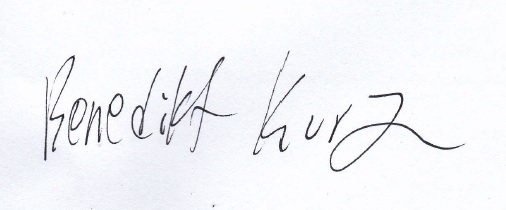 Benedikt Kurz